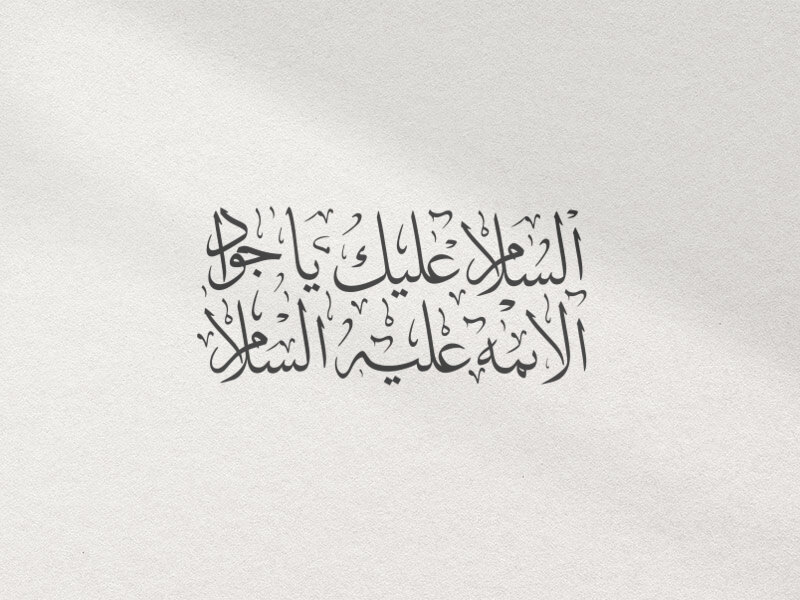 السلام عليك يا جواد
الائمه عليه السلام